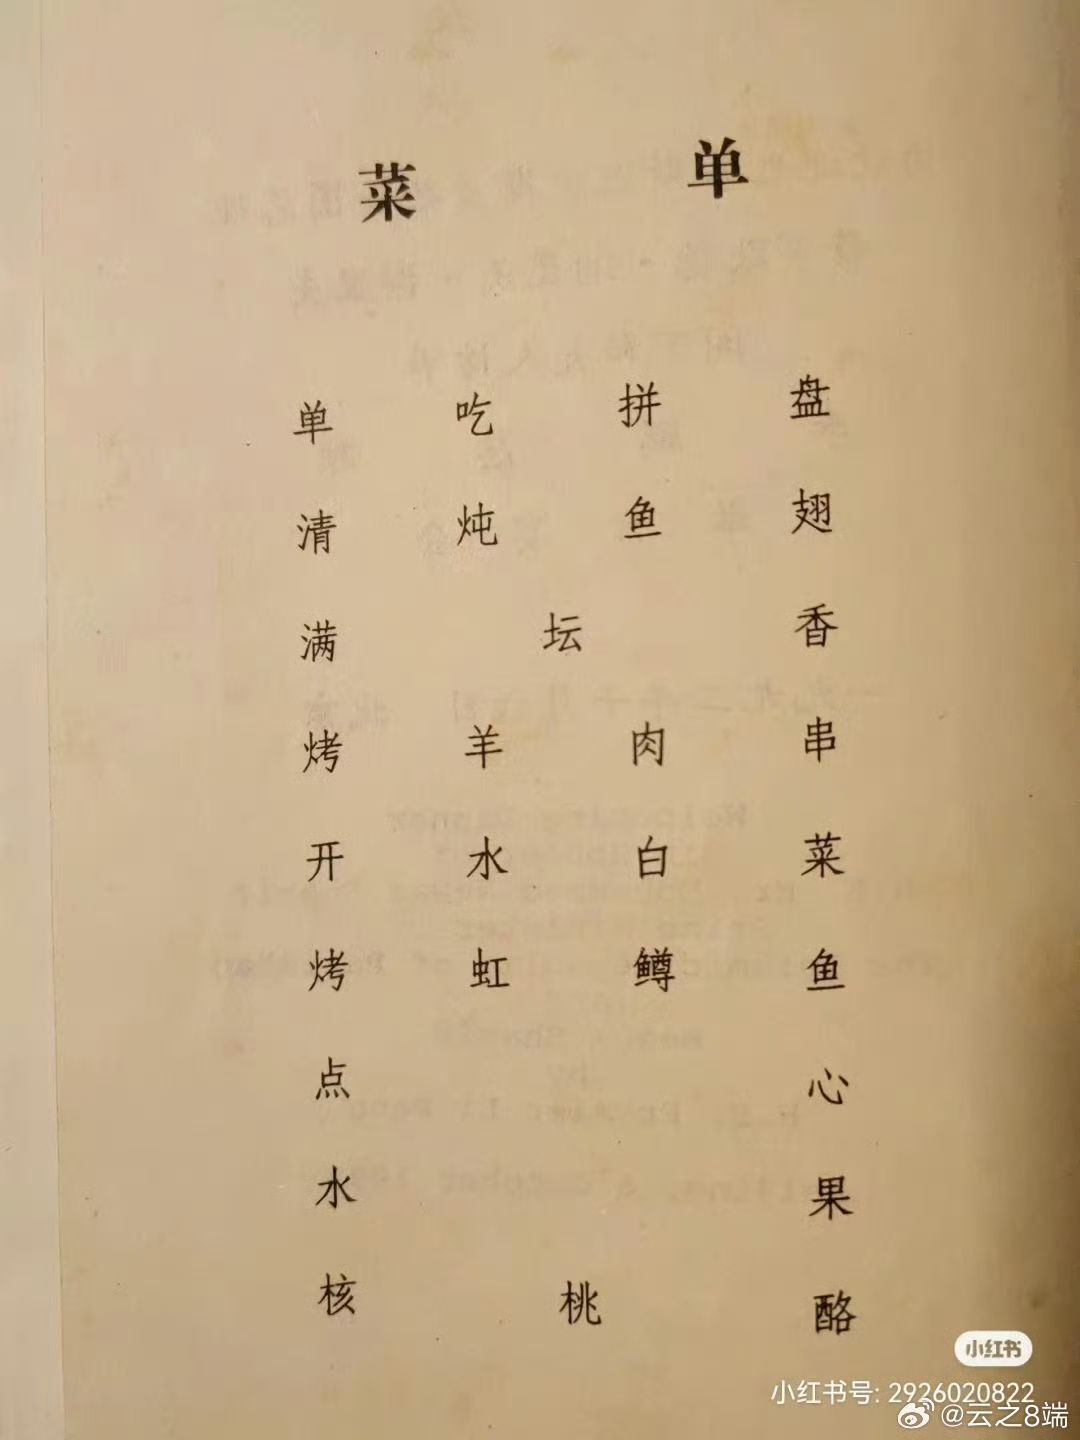 菜单
单吃拼盘
清炖鱼翅
满坛香
烤羊肉串
开水白菜
烤虹鳟鱼
点心
水果
核桃酪
小红书
小红书号: 2926020822
@云之8端